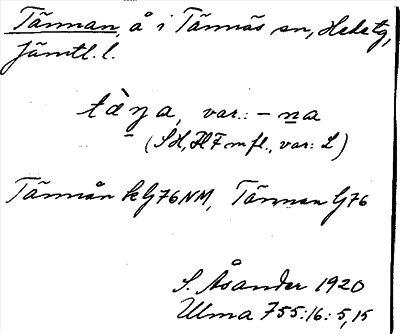 Tännan, å i Tännäs sn, Hede tg,
Jämtl. l.
tä̀n̠a, var.: –n̠a
(SH, HF m fl., var: L)
Tännån kG76NM, Tännan G76
S. Åsander 1920
Ulma 755:16: 5,15